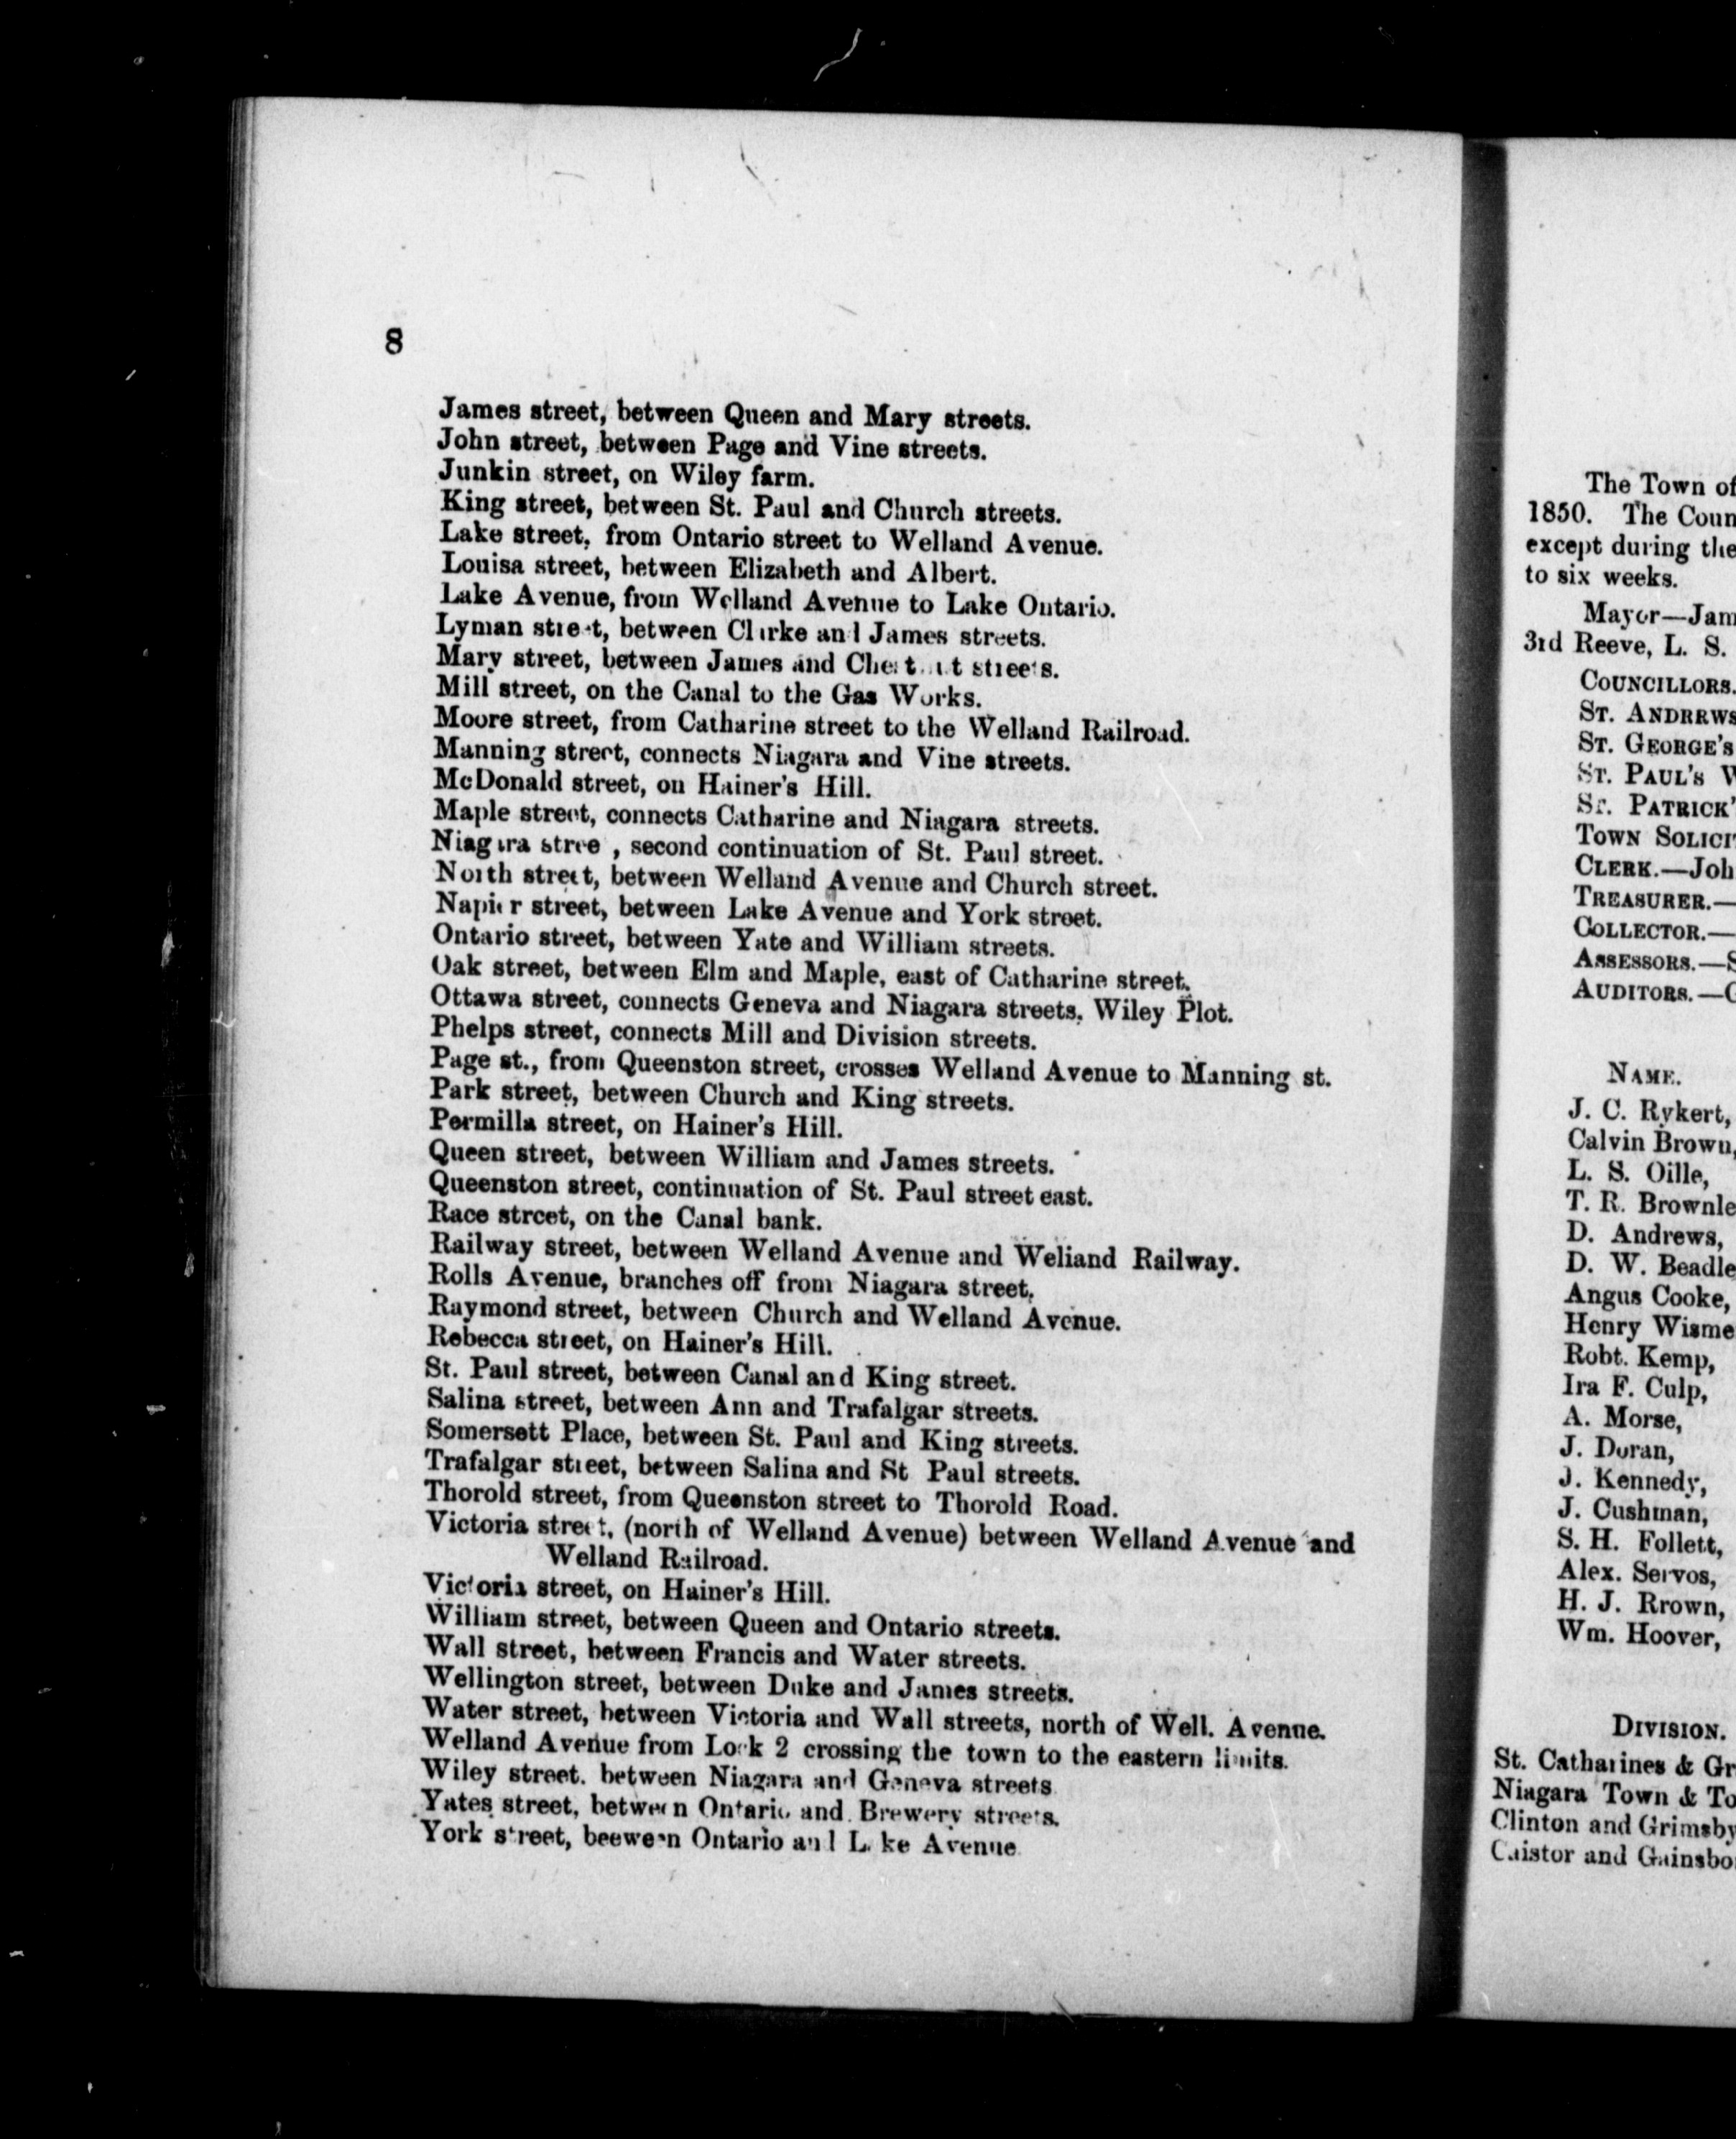 8
James street, between Queen and Mary streets.
John street, between Page and Vine streets.
Junkin street, on Wiley farm.
King street, between St. Paul and Church streets.
Lake street, from Ontario street to Welland Avenue.
Louisa street, between Elizabeth and Albert.
Lake Avenue, from Welland Avenue to Lake Ontario.
Lyman street, between Clarke and James streets.
Mary street, between James and streets.
Mill street, on the Canal to the Gas Works.
Moore street, from Catharine street to the Welland Railroad.
Manning street, connects Niagara and Vine streets.
McDonald street, on Hainer's Hill.
Maple street, connects Catharine and Niagara streets.
Niagara stree , second continuation of St. Paul street.
North street, between Welland Avenue and Church street.
Napier street, between Lake Avenue and York street.
Ontario street, between Yate and William streets.
Oak street, between Elm and Maple, east of Catharine street.
Ottawa street, connects Geneva and Niagara streets, Wiley Plot.
Phelps street, connects Mill and Division streets.
Page st., from Queenston street, crosses Welland Avenue to Manning st.
Park street, between Church and King streets.
Permilla street, on Hainer's Hill.
Queen street, between William and James streets.
Queenston street, continuation of St. Paul street east.
Race street, on the Canal bank.
Railway street, between Welland Avenue and Weliand Railway.
Rolls Avenue, branches off from Niagara street.
Raymond street, between Church and Welland Avenue.
Rebecca street, on Hainer's Hill.
St. Paul street, between Canal and King street.
Salina street, between Ann and Trafalgar streets.
Somersett Place, between St. Paul and King streets.
Trafalgar street, between Salina and St Paul streets.
Thorold street, from Queenston street to Thorold Road.
Victoria street, (north of Welland Avenue) between Welland Avenue and
Welland Railroad.
Victoria street, on Hainer's Hill.
William street, between Queen and Ontario streets.
Wall street, between Francis and Water streets.
Wellington street, between Duke and James streets.
Water street, between Victoria and Wall streets, north of Well. Avenue.
Welland Avenue from Lock 2 crossing the town to the eastern limits.
Wiley street. between Niagara and Geneva streets
Yates street, between Ontario and Brewery streets.
York street, beeween Ontario and Lake Avenue
The Town of
1850. The Coun
except during the
to six weeks.
Mayor—Jam
3rd Reeve, L. S.
COUNCILLORS.
ST. ANDREWS
ST. GEORGE'S
ST. PAUL'S W
ST. PATRICK'
TOWN SOLICIT
CLERK.—Joh
TREASURER.—
COLLECTOR.—
ASSESSORS.—S
AUDITORS.—G
NAME.
J. C. Rykert,
Calvin Brown,
L. S. Oille,
T. R. Brownle
D. Andrews,
D. W. Beadle
Angus Cooke,
Henry Wisme
Robt. Kemp,
Ira F. Culp,
A. Morse,
J. Doran,
J. Kennedy,
J. Cushman,
S. H. Follett,
Alex. Servos,
H. J. Rrown,
Wm. Hoover,
DIVISION.
St. Catharines & Gr
Niagara Town & To
Clinton and Grimsby
Caistor and Gainsbo